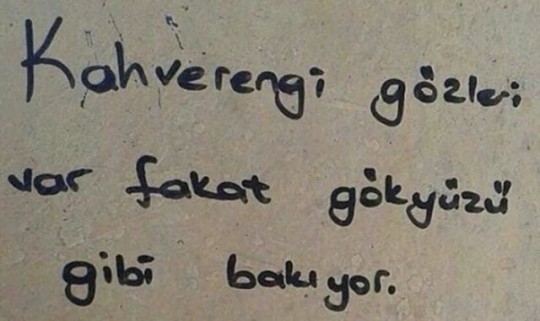 Kahverengi gözleri
var fakat gökyüzü
gibi bakıyor.